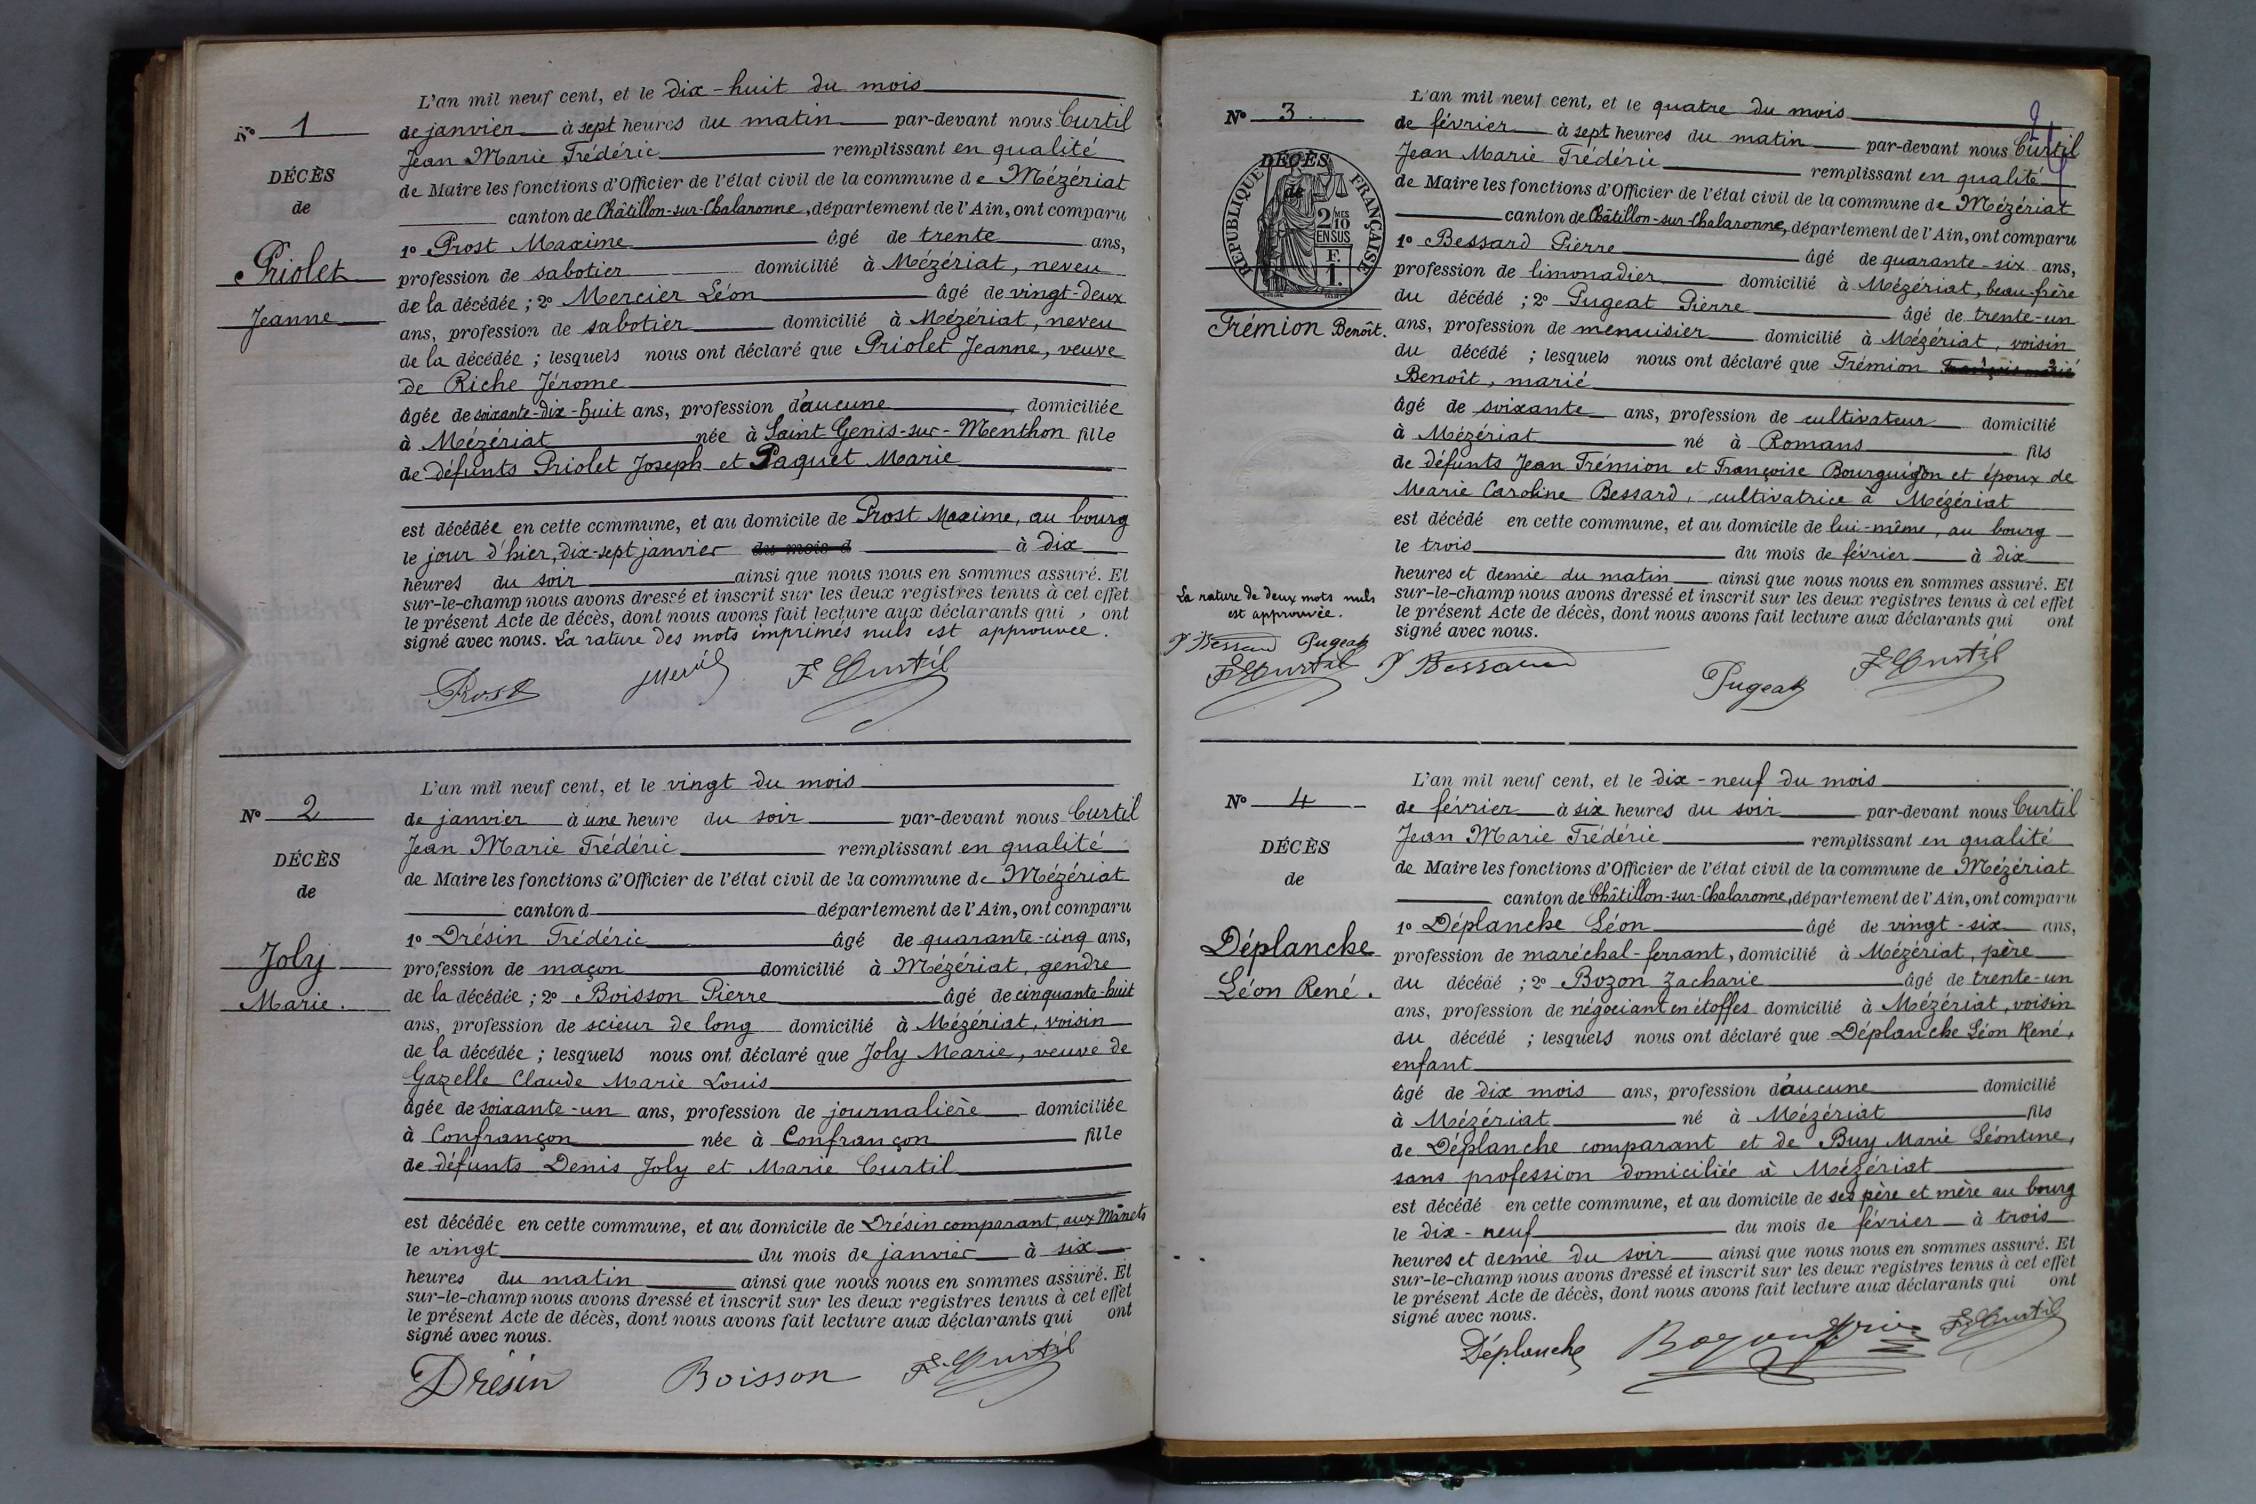 L'an mil neuf cent, et le dix-huit du mois
N° 1
de janvier à sept heures du matin par-devant nous Curtil
Jean Marie Frédéric remplissant en qualité
DÉCÈS
de Maire les fonctions d'Officier de l'état civil de la commune de Mézériat
de
canton de Châtillon-sur-Chalaronne, département de l'Ain, ont comparu
1° Prost Maxime âgé de trente ans,
Priolet
profession de sabotier domicilié à Mézériat, neveu
de la décédée ; 2° Mercier Léon âgé de vingt-deux
Jeanne
ans, profession de sabotier domicilié à Mézériat, neveu
de la décédée ; lesquels nous ont déclaré que Priolet Jeanne, veuve
de Riche Jérome
âgée de soixante-dix-huit ans, profession d'aucune domiciliée
à Mézériat née à Saint-Genis-sur-Menthon fille
de défunts Priolet Joseph et Paquet Marie
est décédée en cette commune, et au domicile de Prost Maxime, au bourg
le jour d'hier, dix-sept janvier du mois d à dix
heures du soir ainsi que nous nous en sommes assuré. Et
sur-le-champ nous avons dressé et inscrit sur les deux registres tenus à cet effet
le présent Acte de décès, dont nous avons fait lecture aux déclarants qui , ont
signé avec nous. La rature des mots imprimés nuls est approuvée.
Prost F. Curtil
L'an mil neuf cent, et le vingt du mois
N° 2
de janvier à une heure du soir par-devant nous Curtil
Jean Marie Frédéric remplissant en qualité
DÉCÈS
de Maire les fonctions d'Officier de l'état civil de la commune de Mézériat
de
canton d département de l'Ain, ont comparu
1° Drésin Frédéric âgé de quarante-cinq ans,
Joly
profession de maçon domicilié à Mézériat, gendre
Marie.
de la décédée ; 2° Boisson Pierre âgé de cinquante-huit
ans, profession de scieur de long domicilié à Mézériat, voisin
de la décédée ; lesquels nous ont déclaré que Joly Marie, veuve de
Gazelle Claude Marie Louis
âgée de soixante-un ans, profession de journalière domiciliée
à Confrançon née à Confrançon fille
de défunts Denis Joly et Marie Curtil
est décédée en cette commune, et au domicile de Drésin comparant, aux Manets
le vingt du mois de janvier à six
heures du matin ainsi que nous nous en sommes assuré. Et
sur-le-champ nous avons dressé et inscrit sur les deux registres tenus à cet effet
le présent Acte de décès, dont nous avons fait lecture aux déclarants qui ont
signé avec nous.
Drésin Boisson F. Curtil
L'an mil neuf cent, et le quatre du mois
N° 3
de février à sept heures du matin par-devant nous Curtil
Jean Marie Frédéric remplissant en qualité
DÉCÈS
de
RÉPUBLIQUE FRANÇAISE
2/10 MES
EN SUS
F.
1.
de Maire les fonctions d'Officier de l'état civil de la commune de Mézériat
canton de Châtillon-sur-Chalaronne, département de l'Ain, ont comparu
1° Bessard Pierre âgé de quarante-six ans,
profession de limonadier domicilié à Mézériat, beau-frère
du décédé ; 2° Pugeat Pierre âgé de trente-un
Frémion Benoît.
ans, profession de menuisier domicilié à Mézériat, voisin
du décédé ; lesquels nous ont déclaré que Frémion
Benoît, marié
âgé de soixante ans, profession de cultivateur domicilié
à Mézériat né à Romans fils
de défunts Jean Frémion et Françoise Bourguignon et époux de
Marie Caroline Bessard, cultivatrice à Mézériat
est décédé en cette commune, et au domicile de lui-même, au bourg
le trois du mois de février à dix
heures et demie du matin ainsi que nous nous en sommes assuré. Et
sur-le-champ nous avons dressé et inscrit sur les deux registres tenus à cet effet
le présent Acte de décès, dont nous avons fait lecture aux déclarants qui ont
signé avec nous.
La rature de deux mots nuls
est approuvée.
P Bessard Pugeat
F. Curtil P Bessard Pugeat F. Curtil
L'an mil neuf cent, et le dix-neuf du mois
N° 4
de février à six heures du soir par-devant nous Curtil
Jean Marie Frédéric remplissant en qualité
DÉCÈS
de Maire les fonctions d'Officier de l'état civil de la commune de Mézériat
de
canton de Châtillon-sur-Chalaronne, département de l'Ain, ont comparu
1° Déplanche Léon âgé de vingt-six ans,
Déplanche
profession de maréchal-ferrant, domicilié à Mézériat, père
du décédé ; 2° Bozon Zacharie âgé de trente-un
Léon René.
ans, profession de négociant en étoffes domicilié à Mézériat, voisin
du décédé ; lesquels nous ont déclaré que Déplanche Léon René,
enfant
âgé de dix mois ans, profession d'aucune domicilié
à Mézériat né à Mézériat fils
de Déplanche comparant et de Buy Marie Léontine,
sans profession domiciliée à Mézériat
est décédé en cette commune, et au domicile de ses père et mère au bourg
le dix-neuf du mois de février à trois
heures et demie du soir ainsi que nous nous en sommes assuré. Et
sur-le-champ nous avons dressé et inscrit sur les deux registres tenus à cet effet
le présent Acte de décès, dont nous avons fait lecture aux déclarants qui ont
signé avec nous.
Déplanche Bozon F. Curtil